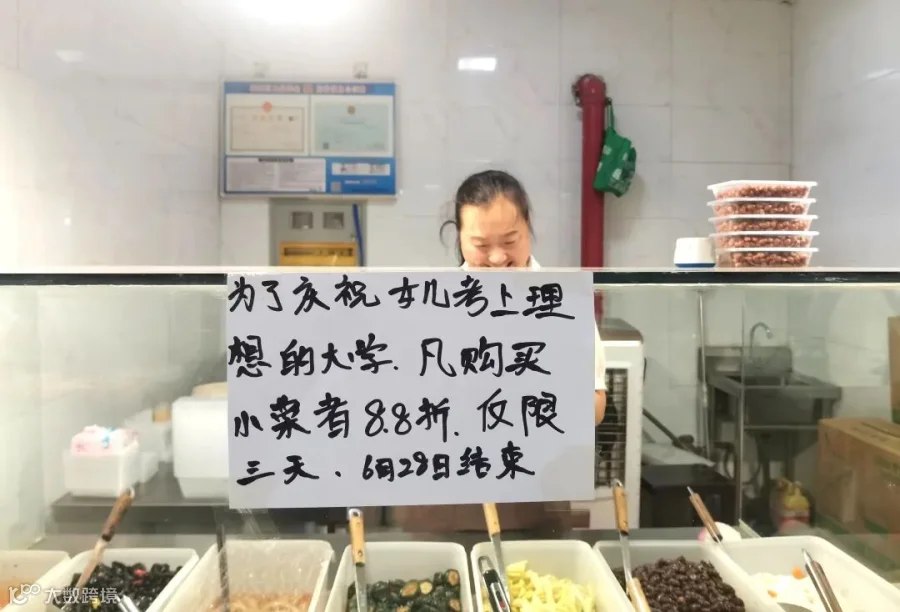 为了庆祝女儿考上理
想的大学.凡购买
小菜者8.8折.仅限
三天、6月28日结束
大数跨境